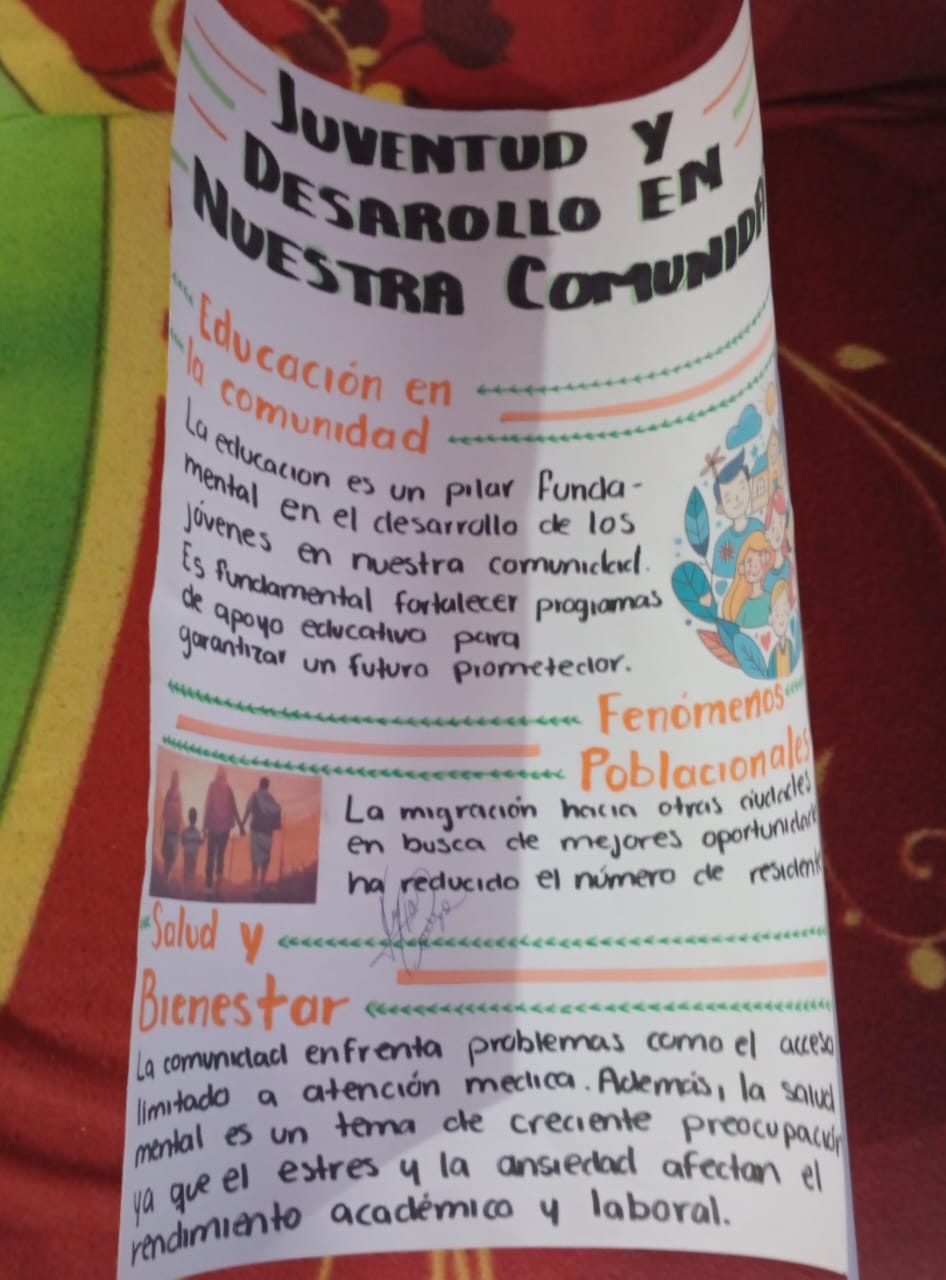 JUVENTUD Y
DESAROLLO EN
NUESTRA COMUNIDA
Educación en
la comunidad
La educacion es un pilar funda-
mental en el desarrollo de los
jóvenes en nuestra comunidad.
Es fundamental fortalecer programas
de apoyo educativo para
garantizar un futuro prometedor.
Fenómenos
Poblacionales
La migración hacia otras ciudades
en busca de mejores oportunidad
ha reducido el número de resident
Salud y
Bienestar
La comunidad enfrenta problemas como el acceso
limitado a atención medica. Además, la salud
mental es un tema de creciente preocupación
ya que el estres y la ansiedad afectan el
rendimiento académico y laboral.